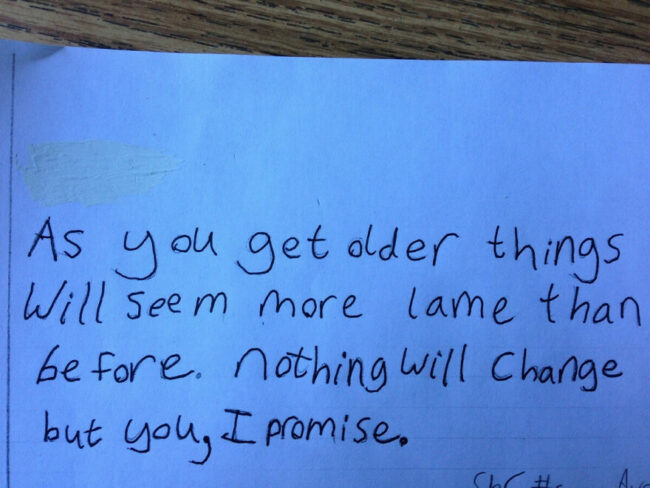 As you get older things
Will seem more lame than
before. nothing will change
but you, I promise.